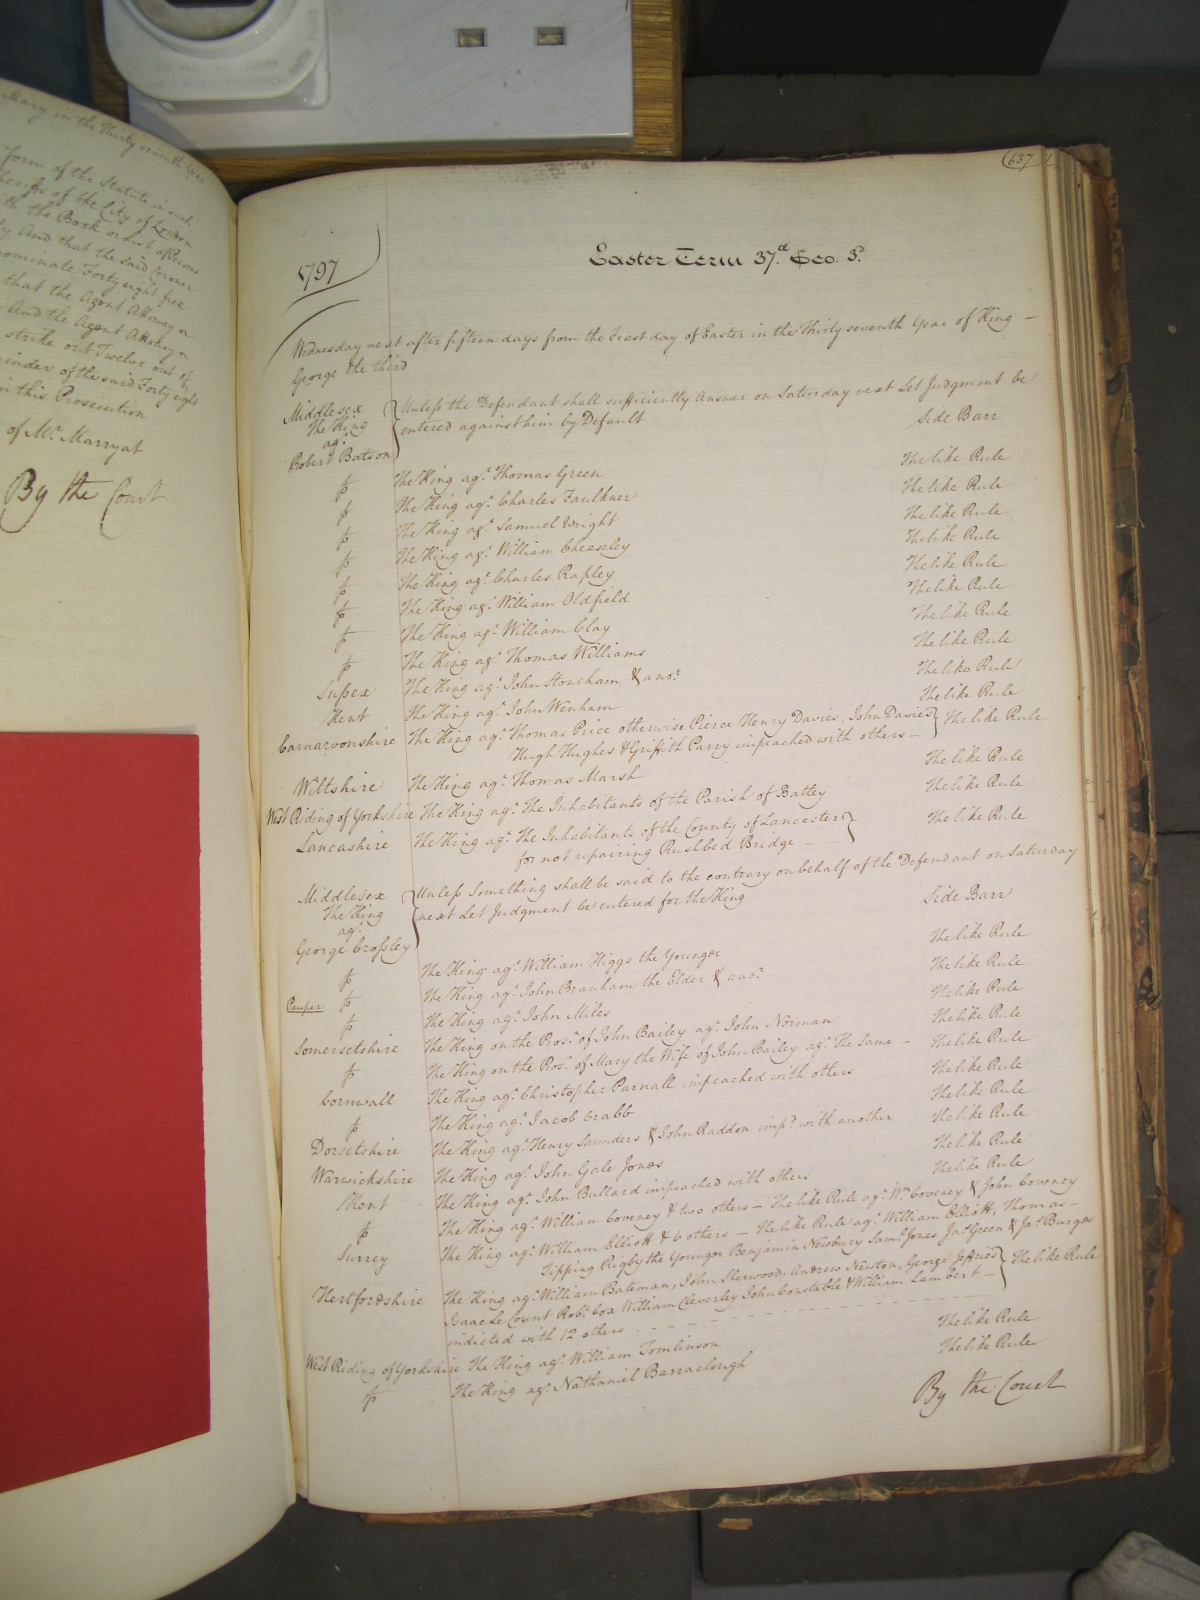 Mary in the Thirty seventh Year
form of the Statute in such
Sheriffs of the City of London
with the Book or list of Persons
And that the said Coroner
nominate Forty eight free
that the Agent Attorney or
And the Agent Attorney or
strike out Twelve out of
of the said Forty eight
in this Prosecution
of Mr. Marryat
By the Court
637
1797
Easter Term 37.d Geo. 3.d
Wednesday next after fifteen days from the Feast day of Easter in the Thirty seventh Year of King –
George the third
Middlesex Unless the Defendant shall sufficiently Answer on Saturday next Let Judgment be
The King entered against him by Default Side Barr
agt.
Robert Batson
The King agt. Thomas Green The like Rule
The King agt. Charles Faulkner The like Rule
The King agt. Samuel Wright The like Rule
The King agt. William Cheaseley The like Rule
The King agt. Charles Rapley The like Rule
The King agt. William Oldfield The like Rule
The King agt. William Clay The like Rule
The King agt. Thomas Williams The like Rule
Sussex The King agt. John Stoneham & anor. The like Rule
Kent The King agt. John Wenham The like Rule
Carnarvonshire The King agt. Thomas Price otherwise Pierce Henry Davies, John Davies The like Rule
Hugh Hughes & Griffith Parry impeached with others –
Wiltshire The King agt. Thomas Marsh The like Rule
West Riding of Yorkshire The King agt. The Inhabitants of the Parish of Batley The like Rule
Lancashire The King agt. The Inhabitants of the County of Lancaster The like Rule
for not repairing Rushbed Bridge –
Middlesex Unless Something shall be said to the contrary on behalf of the Defendant on Saturday
The King next Let Judgment be entered for the King Side Barr
agt.
George Crossley
The King agt. William Higgs the Younger The like Rule
Pauper The King agt. John Branham the Elder & anor. The like Rule
The King agt. John Miles The like Rule
Somersetshire The King on the Pros.n of John Bailey agt. John Norman The like Rule
The King on the Pros.n of Mary the Wife of John Bailey agt. The Same – The like Rule
Cornwall The King agt. Christopher Parnall impeached with others The like Rule
The King agt. Jacob Crabb The like Rule
Dorsetshire The King agt. Henry Saunders & John Raddon imp.d with another The like Rule
Warwickshire The King agt. John Gale Jones The like Rule
Kent The King agt. John Ballard impeached with others The like Rule
The King agt. William Coveney & two others – The like Rule agt. Wm. Coveney & John Coveney
Surrey The King agt. William Elliott & 6 others – The like Rule agt. William Elliott, Thomas –
Tipping Rigby the Younger Benjamin Newbury Saml. Jones Jas. Green & Jas. Burges
Hertfordshire The King agt. William Bateman, John Sherwood, Andrew Newton, George Jeffries The like Rule
Isaac Le Count Robt. Cox William Cleverley John Constable & William Lambert –
indicted with 12 others
West Riding of Yorkshire The King agt. William Tomlinson The like Rule
The King agt. Nathaniel Barraclough The like Rule
By the Court